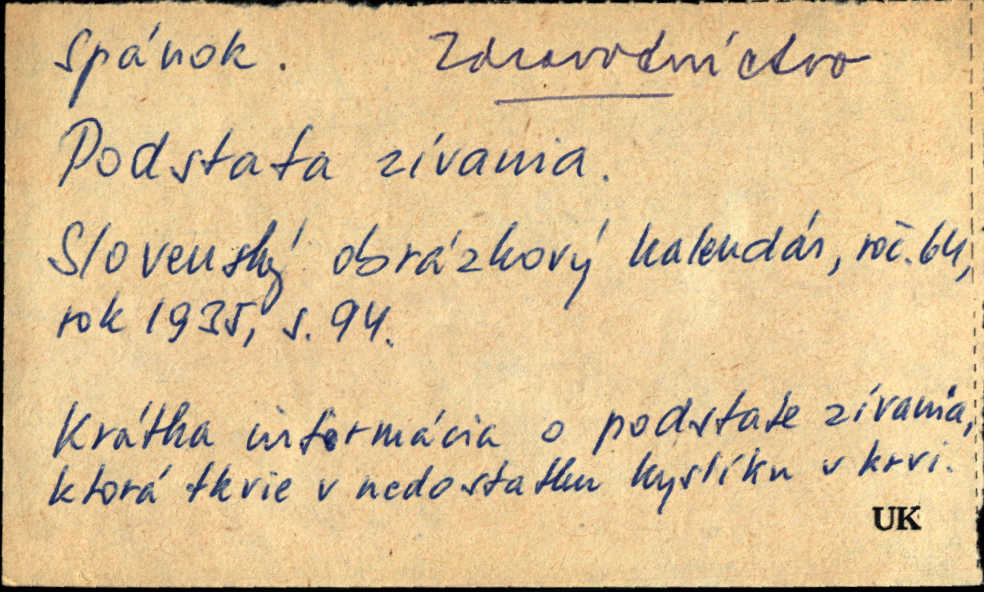 Spánok. Zdravotníctvo
Podstata zívania.
Slovenský obrázkový kalendár, roč. 64,
rok 1935, s. 94.
Krátka informácia o podstate zívania,
ktorá tkvie v nedostatku kyslíku v krvi.
UK